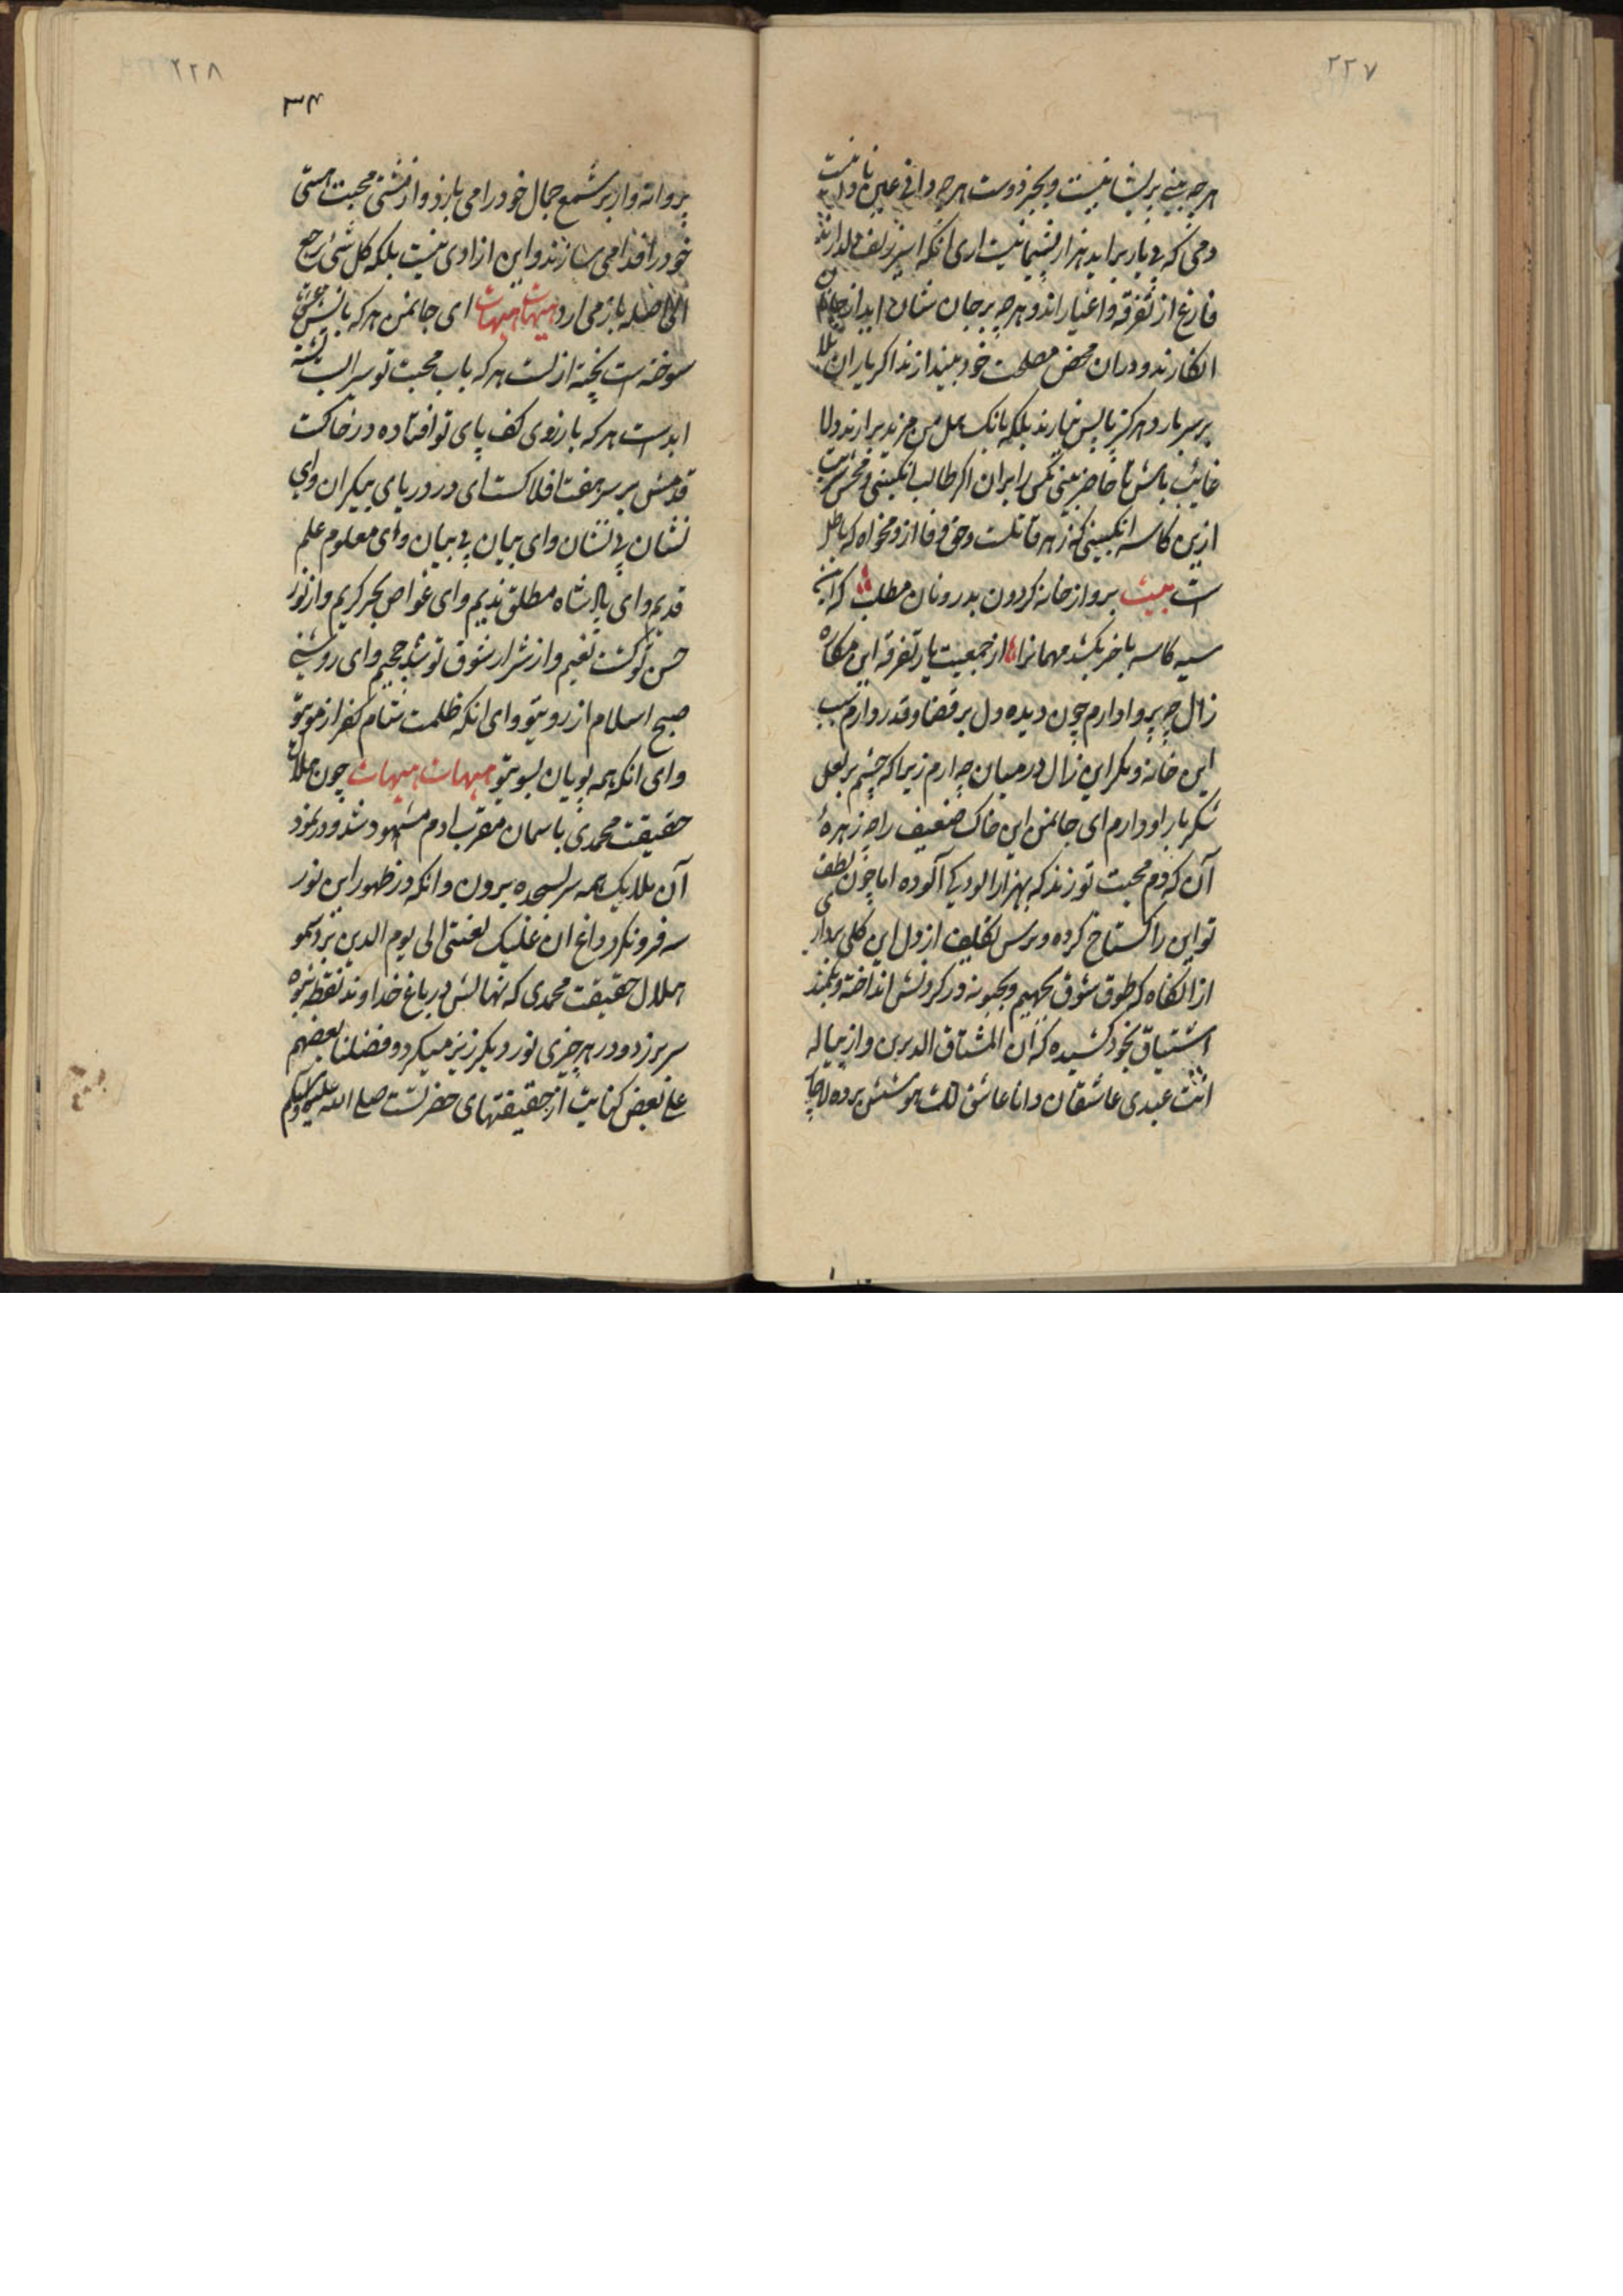 ۲۲۷
هر چه بینی پریشانیست و بجز دوست هر چه دانی عین نادانیست
دمی که بی یار براید هزار پشیمانیست اری انکه اسیر زلف دلدارند
فارغ از تفرقه و اغیار اند و هر چه بر جان شان اید از جانان
انکارند و دران محض مصلحت خود بینند ازند اکر باران بلا
بر سر بارد هرکز پا پس نیارند بلکه بانک هل من مزید برارند دلا
غائب باش تا حاضر بینی مکس را بران اکر طالب انکبینی و مچش شربت
ازین کاسه انکبینی که زهر قاتلست و حق وفا ازو مخواه که باطل
است بیت برو از خانه کردون بدر و نان مطلب که این
سیه کاسه باخر بکشد مهمانرا از جمعیت یا تفرقه این مکاره
زال چه پروا دارم چون دیده دل بر قضا و قدر دارم سبب
این خانه و مکر این زال در میان چه ارم زیرا که چشم بر لعل
شکر بار او دارم ای جانمن این خاک ضعیف را چه زهرهٔ
آن که دم محبت تو زند که بهزار الودیکی آلوده اما چون لطف
تو این را کستاخ کرده و ترس تکلیف از دل این کلی بردار
ازانکاه که طوق شوق یحبهم و یحبونه در کردنش انداخته و بکمند
اشتیاق بخود کشیده که ان المشتاق الدیرین و از پیاله
انت عبدی عاشقان و انا عاشق لک هوشش برده لاجا
۲۲۸
۳۴
پروانه وار بر شمع جمال خود را می بازد و از منشی محبت هستی
خود را فدا می سازند و این ازادی نیست بلکه کل شئ یرجع
الی اصله باز می ارد هیهات هیهات ای جانمن هر که باتش عشق
سوخته است پخته ازلست هر که باب محبت تو سیراب تشنه
ابدست هر که بارزوی کف پای تو افتاده در خاکت
قدمش بر سر هفت افلاکست ای در دریای بیکران وای
نشان بی نشان وای بیان بی بیان وای معلوم علم
قدیم وای پادشاه مطلق ندیم وای غواص بحر کریم واز نور
حسن تو کشت نعیم و از شرار شوق تو شد جحیم وای روشنی
صبح اسلام از رویتو وای انکه ظلمت شام کفر از مویتو
وای انکه همه پویان بسویتو هیهات هیهات چون هلال
حقیقت محمدی باسمان مقرب ادم مشهود شد و در نمود
آن ملایک همه سر بسجده بیرون وانکه در ظهور این نور
سه فرو نکرد داغ ان علیک لعنتی الی یوم الدین بر و نمو
هلال حقیقت محمدی که نهالش در باغ خداوند نقطه نبوه
سر برزد و در هر چیزی نور دیکر زیر میکرد و فضلنا بعضهم
علی بعض کنایت از حقیقتهای حضرتست صلی الله علیه و سلم